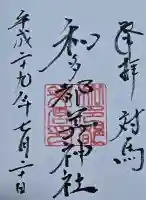 奉拝 対馬
和多都美神社
平成二十九年七月二十日